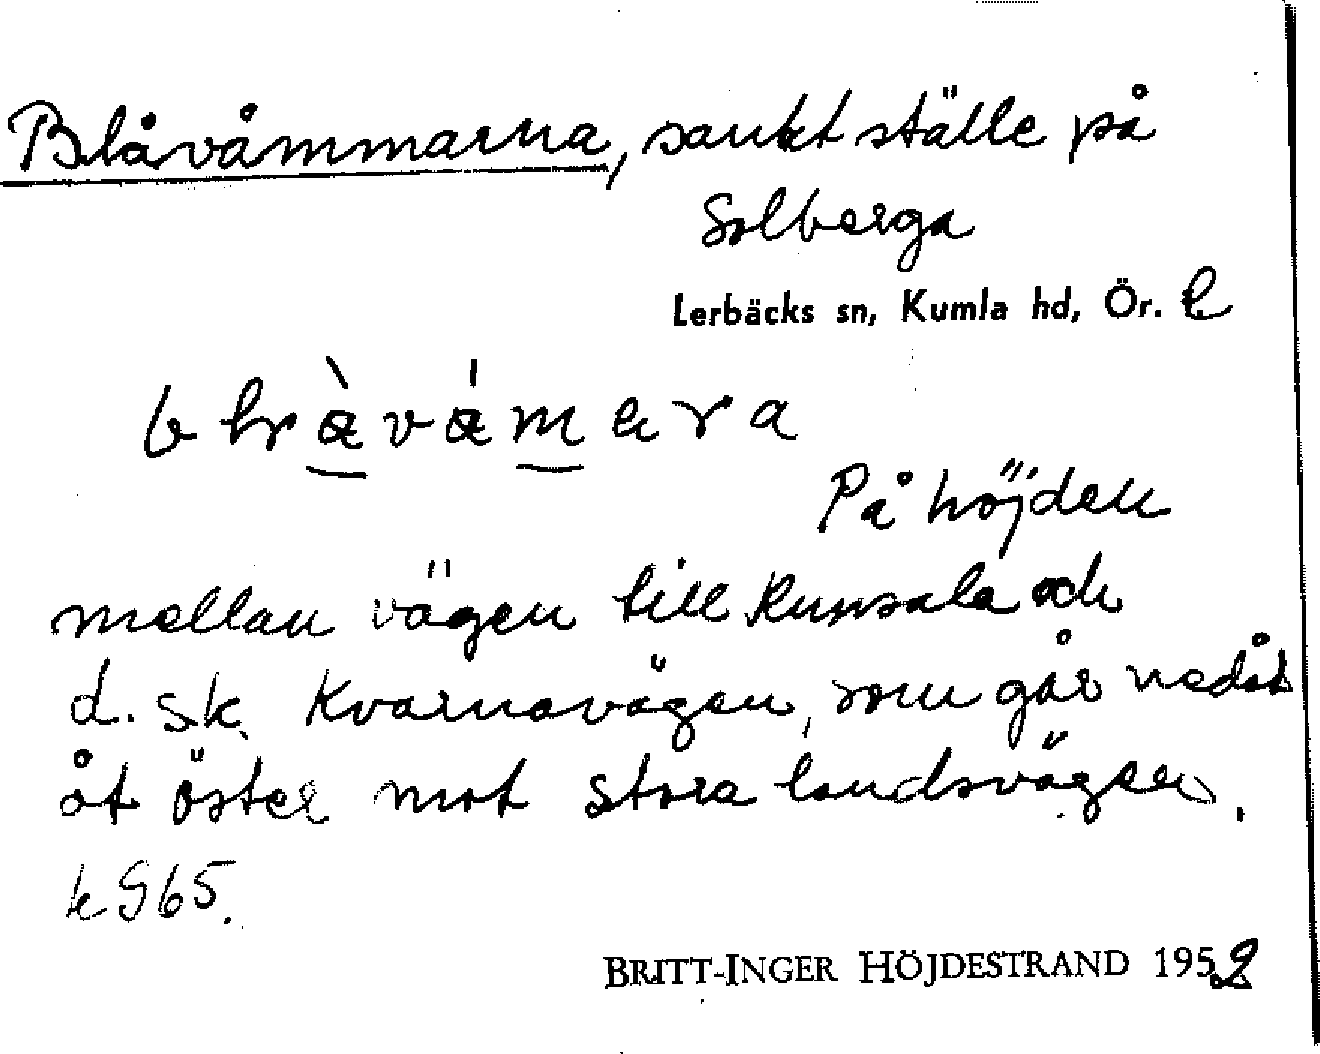 Blåvåmmarna, sankt ställe på
Solberga
Lerbäcks sn, Kumla hd, Ör. l
På höjden
mellan vägen till Rumsala och
d. sk. Kvarnavägen, som går nedåt
åt öster mot stora landsvägen.
k S65.
BRITT-INGER HÖJDESTRAND 1952